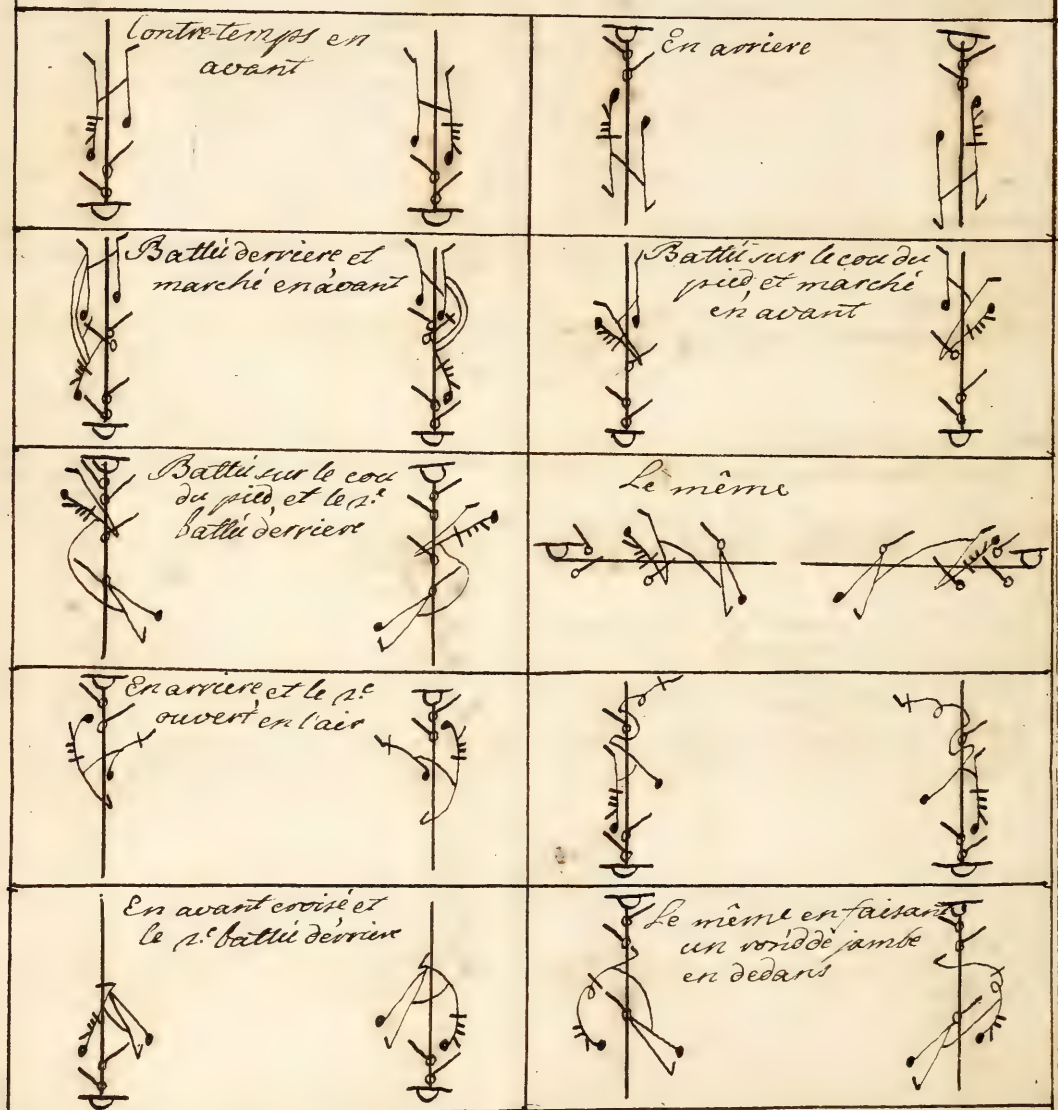 Contre-temps en
avant
En arriere
Battú derriere et
marché en avant
Battú sur le cou du
pied et marché
en avant
Battú sur le cou
du pied, et le 2.e
battú derriere
Le même
En arriere, et le 2.e
ouvert en l'air
En avant croisé et
le 2.e battú derriere
Le même en faisant
un rond de jambe
en dedans